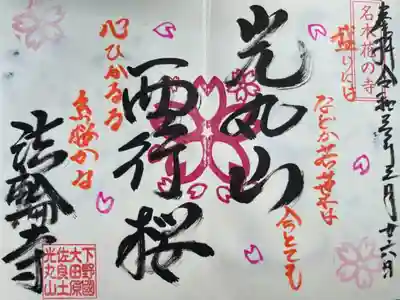 奉拝 令和五年三月廿六日
名木桜の寺
盛りには
などか若葉は今とても
光丸山
西行桜
心ひかるる
糸桜かな
法輪寺
下野國
大田原
佐良土
光丸山